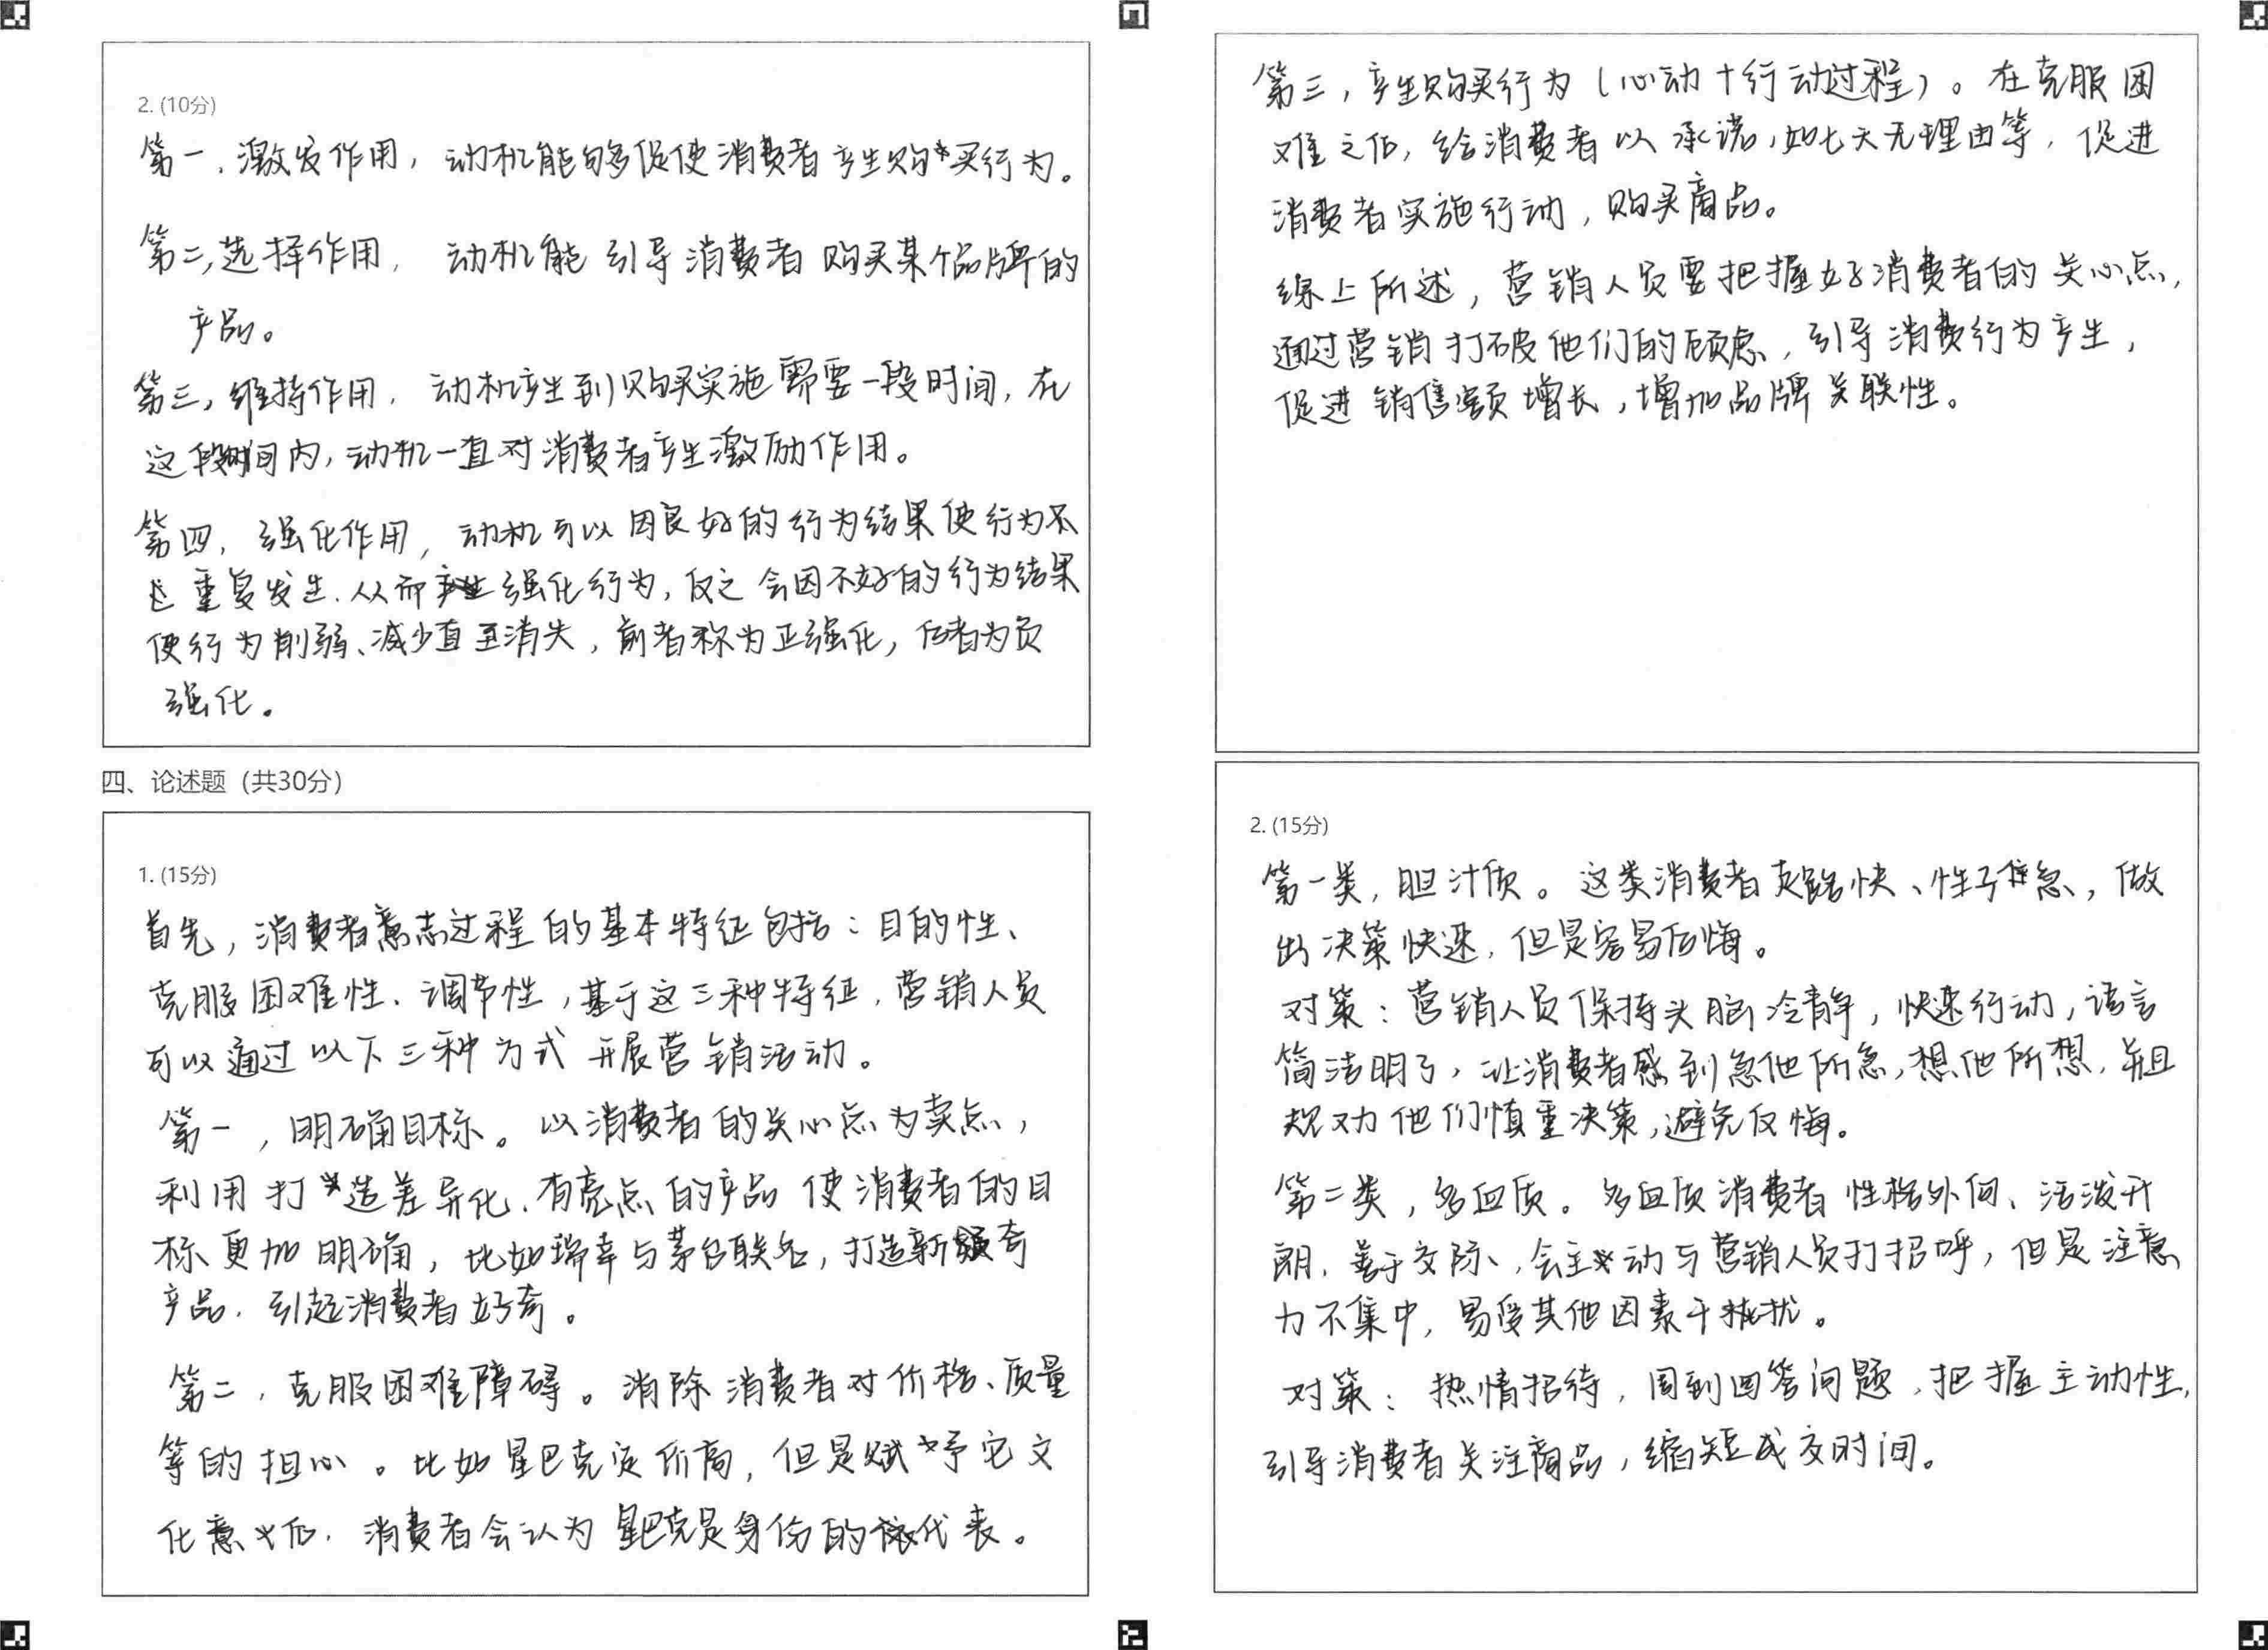 2. (10分)
第一，激发作用，动机能够促使消费者产生购买行为。
第二，选择作用，动机能引导消费者购买某个品牌的
产品。
第三，维持作用，动机产生到购买实施需要一段时间，在
这段时间内，动机一直对消费者产生激励作用。
第四，强化作用，动机可以因良好的行为结果使行为不
重复发生，从而强化行为，反之会因不好的行为结果
使行为削弱、减少直至消失，前者称为正强化，后者为负
强化。
四、论述题（共30分）
1. (15分)
首先，消费者意志过程的基本特征包括：目的性、
克服困难性、调节性，基于这三种特征，营销人员
可以通过以下三种方式开展营销活动。
第一，明确目标。以消费者的关心点为卖点，
利用打造差异化、有亮点的产品使消费者的目
标更加明确，比如瑞幸与茅台联名，打造新奇
产品，引起消费者好奇。
第二，克服困难障碍。消除消费者对价格、质量
等的担心。比如星巴克定价高，但是赋予它文
化意义后，消费者会认为星巴克是身份的代表。
第三，产生购买行为（心动+行动过程）。在克服困
难之后，给消费者以承诺，如七天无理由等，促进
消费者实施行动，购买商品。
综上所述，营销人员要把握好消费者的关心点，
通过营销打破他们的顾虑，引导消费行为产生，
促进销售额增长，增加品牌关联性。
2. (15分)
第一类，胆汁质。这类消费者走路快、性子急，做
出决策快速，但是容易后悔。
对策：营销人员保持头脑冷静，快速行动，语言
简洁明了，让消费者感到急他所急，想他所想，并且
规劝他们慎重决策，避免反悔。
第二类，多血质。多血质消费者性格外向、活泼开
朗，善于交际、，会主动与营销人员打招呼，但是注意
力不集中，易受其他因素干扰。
对策：热情招待，周到回答问题，把握主动性，
引导消费者关注商品，缩短成交时间。